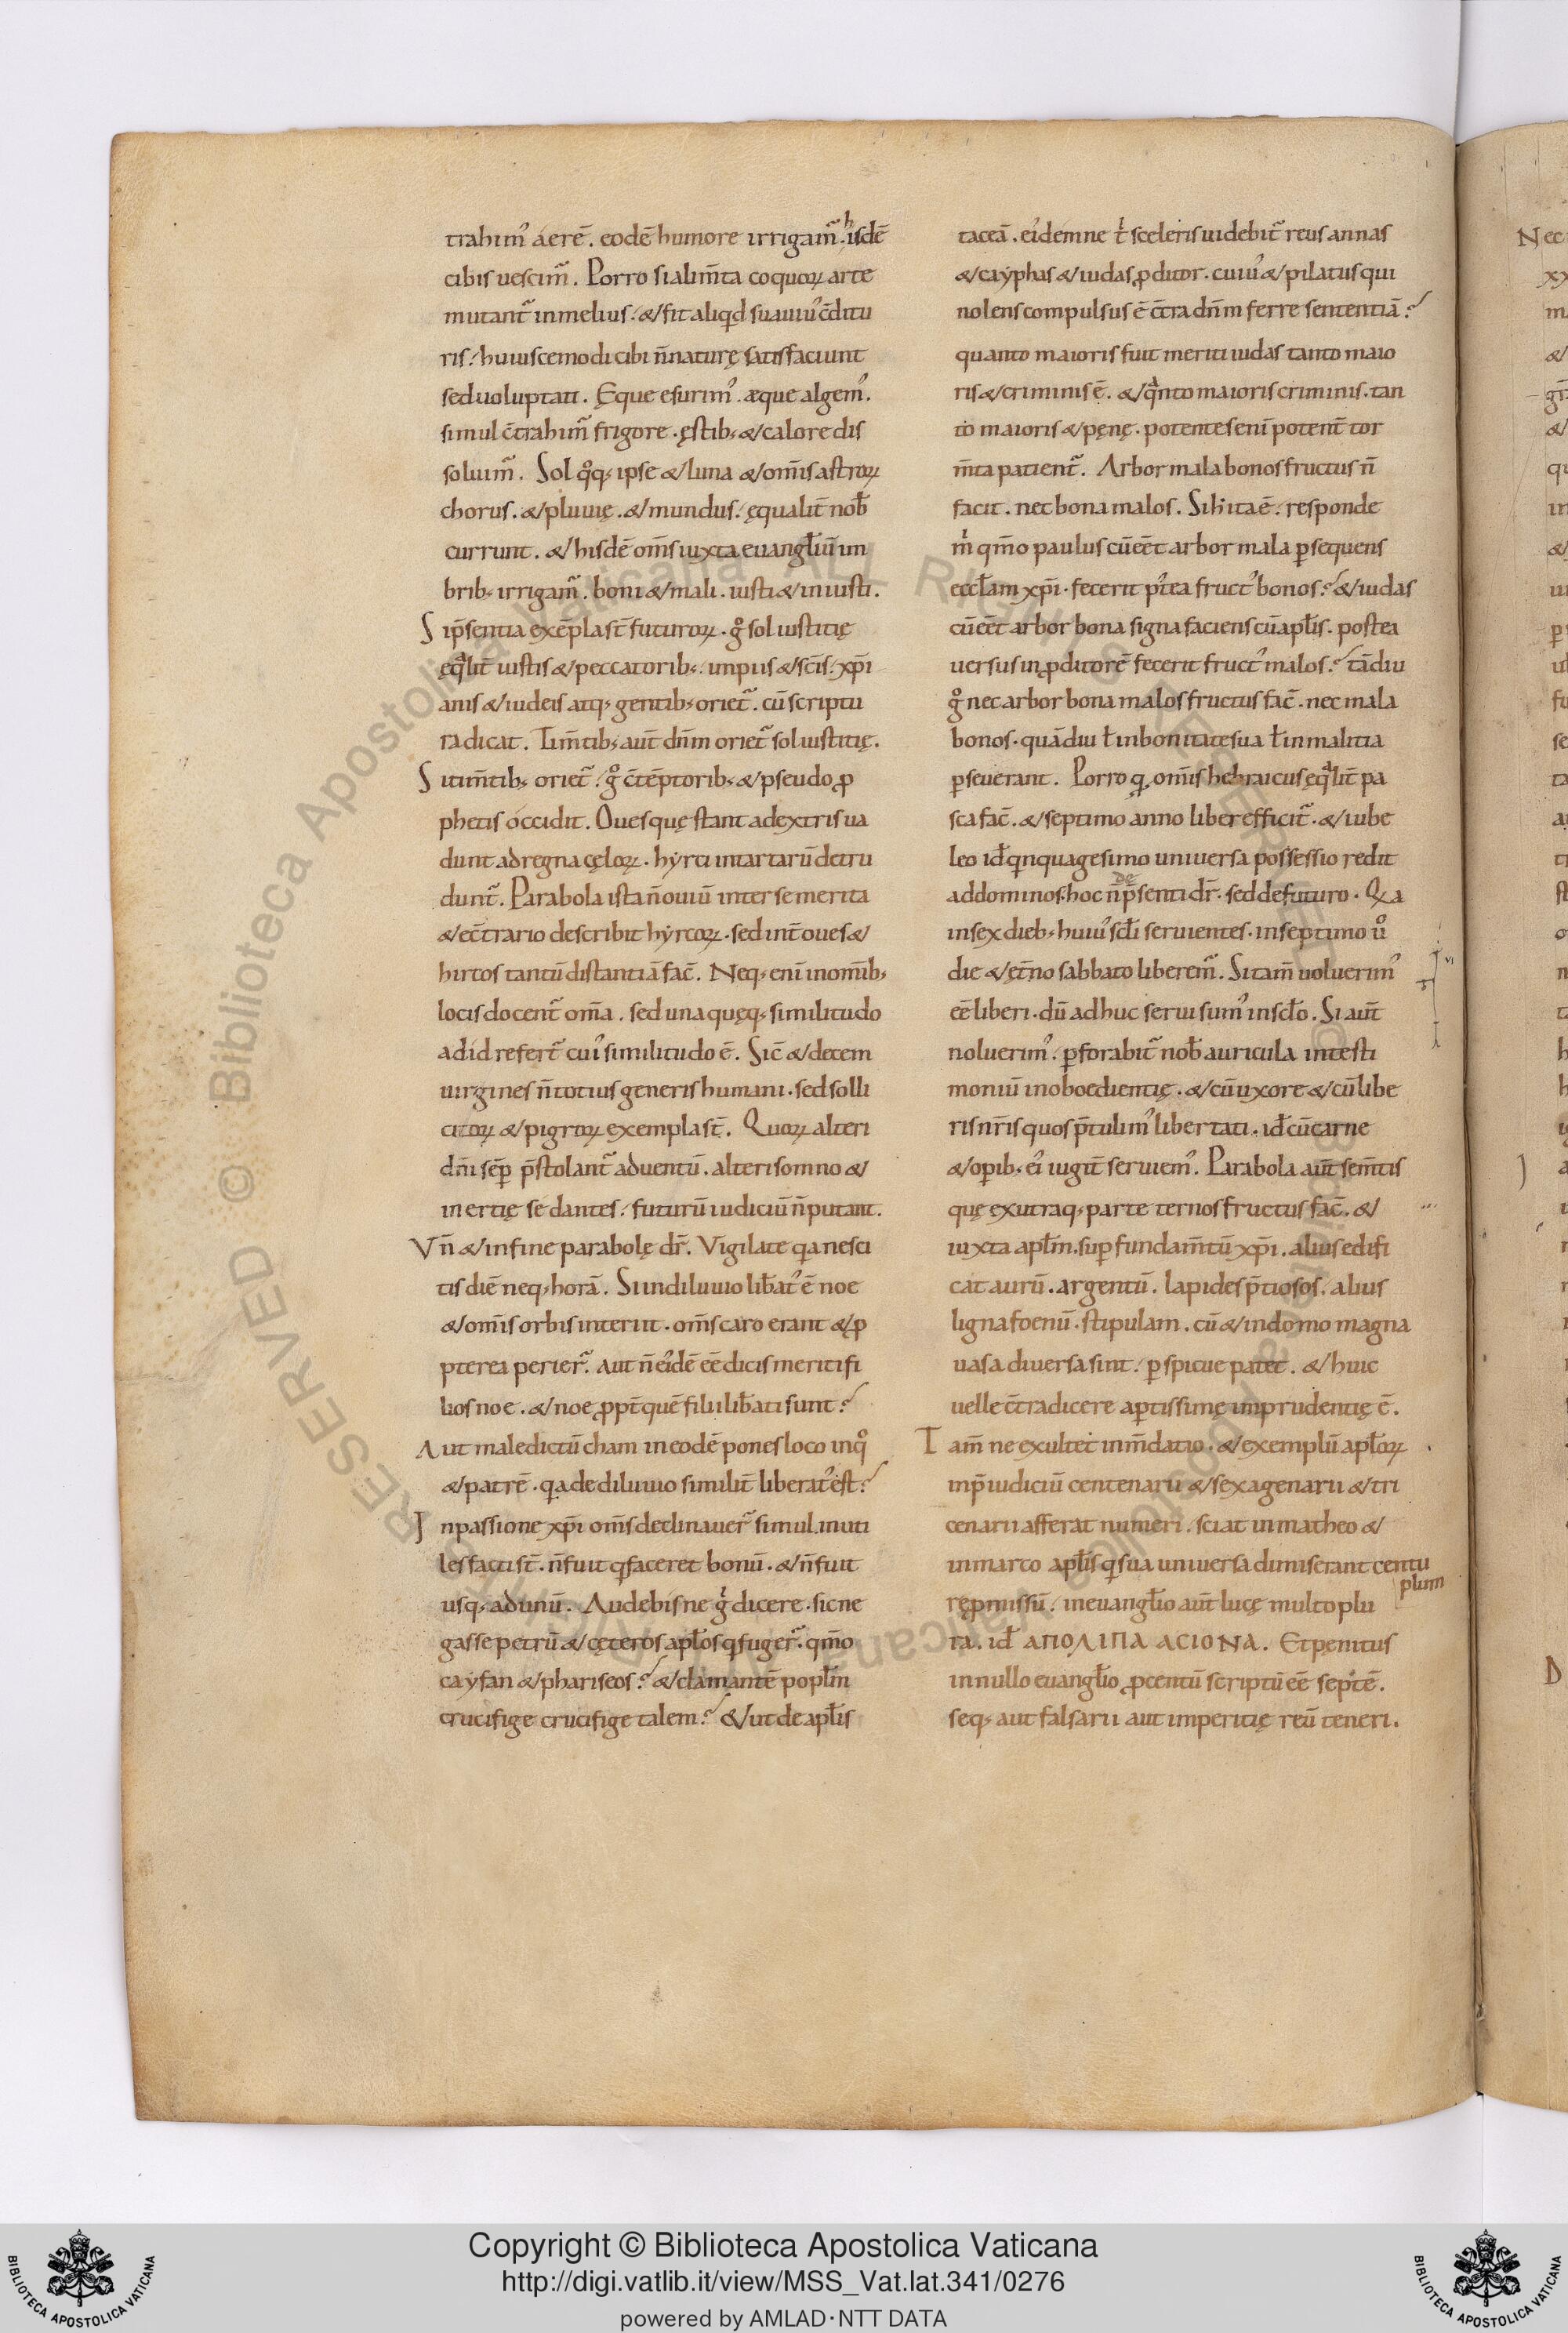 trahim᾽ aerē. eodē humore irrigam̃. hisdē
cibis uescim̃. Porro si alim̄ta coquoꝝ arte
mutant̃ inmelius. & fit aliqd suauiu᾽ c̄ditu
ris. huiuscemodi cibi n̄ naturę satisfaciunt
sed uoluptati. Ęque esurim᾽. æque algem᾽.
simul c̄trahim̃ frigore. ęstib; & calore dis
soluim̃. Sol qͦq; ipse & luna & om̄is astroꝝ
chorus. & pluuię. & mundus. ęqualit̄ nob̄
currunt. & hisdē om̄s iuxta euangl̄iū im
brib; irrigam̃. boni & mali. iusti & iniusti.
Si p̄sentia exēpla st̄ futuroꝝ. gͦ sol iustitię
ęqͣlit̄ iustis & peccatorib;. impiis & sc̄is. xp̄i
anis & iudeis atq; gentib; oriet̃. cū scriptu
ra dicat. Tim̄tib; aut̄ dn̄m oriet̃ sol iustitię.
Si tim̄tib; oriet̃. gͦ c̄tēptorib; & pseudo ꝓ
phetis occidit. Oues quę stant adextris ua
dunt ad regna cęloꝝ. hyrci in tartarū detru
dunt̃. Parabola ista n̄ ouiū inter se merita
& ec̄trario describit hyrcoꝝ. sed int̄ oues &
hirtos tantū distantiā fac̄. Neq; eni in om̄ib;
locis docent̃ om̄a. sed una quęq; similitudo
ad id refert̃ cui᾽ similitudo ē. Sic̄ & decem
uirgines n̄ totius generis humani. sed solli
citoꝝ & pigroꝝ exempla st̄. Quoꝝ alteri
dn̄i sēꝑ p̄stolant̃ aduentū. alteri somno &
inertię se dantes. futurū iudiciū n̄ putant.
Vn̄ & in fine parabolę dr̄. Vigilate qa nesci
tis diē neq; horā. Si in diluuio lib̄at᾽ ē noe
& om̄is orbis interiit. om̄s caro erant & ꝓ
pterea perier̃. Aut n̄ ei᾽dē eē dicis meriti fi
lios noe. & noe ꝓpt̄ quē filii lib̄ati sunt?
Aut maledictū cham in eodē pones loco inqͦ
& patrē. qa de diluuio similit̄ liberat᾽ est?
In passione xp̄i om̄s declinauer̃ simul inuti
les facti st̄. n̄ fuit q faceret bonū. & n̄ fuit
usq; ad unū. Audebis ne gͥ dicere. sic ne
gasse petrū & cęteros apl̄os q fuger̃. qm̄o
cayfan & phariseos? & clamantē popl̄m
crucifige crucifige talem? & ut de apl̄is
taceā. ei᾽dem ne tͥ sceleris uidebit̃ reus annas
& cayphas & iudas ꝓditor. cuiu᾽ & pilatus qui
nolens compulsus ē c̄tra dn̄m ferre sententiā?
quanto maioris fuit meriti iudas tanto maio
ris & criminis ē. & qͣnto maioris criminis. tan
to maioris & pęnę. potentes eni potent̄ tor
m̄ta patient̃. Arbor mala bonos fructus n̄
facit. nec bona malos. Si h̄ ita ē. responde
mͥ qm̄o paulus cū eēt arbor mala ꝑsequens
eccl̄am xp̄i. fecerit p᾽tea fruct᾽ bonos? & iudas
cū eēt arbor bona signa faciens cū apl̄is. postea
uersus in ꝓditorē fecerit fruct᾽ malos? tādiu
gͦ nec arbor bona malos fructus fac̄. nec mala
bonos. quādiu ł in bonitate sua ł in malitia
ꝑseuerant. Porro q om̄is hebraicus ęqͣlit̄ pa
sca fac̄. & septimo anno liber efficit̃. & iube
leo id̄ qnquagesimo uniuersa possessio redit
ad dominos. hoc n̄ de p̄senti dr̄. sed de futuro. Qa
in sex dieb; huiu᾽ scl̄i seruientes. in septimo uͦ
die & et̄no sabbato liberem̃. Si tam̄ uoluerim᾽
eē liberi. dū adhuc serui sum᾽ in scl̄o. Si aut̄
noluerim᾽. ꝑforabit̃ nob̄ auricula in testi
moniū inoboedientię. & cū uxore & cū libe
ris nr̄is quos p̄tulim᾽ libertati. id̄ cū carne
& oꝑib; ei᾽ iugit̄ seruiem᾽. Parabola aut̄ sem̄tis
quę ex utraq; parte ternos fructus fac̄. &
iuxta apl̄m. suꝑ fundam̄tū xp̄i. alius edifi
cat aurū. argentū. lapides p̄tiosos. alius
ligna foenū. stipulam. cū & in domo magna
uasa diuersa sint. ꝑspicue patet. & huic
uelle c̄tradicere aꝑtissimę imprudentię ē.
Tam̄ ne exultet in m̄datio. & exemplū apl̄oꝝ
inp̄iudiciū centenarii & sexagenarii & tri
cenarii afferat numeri. sciat in matheo &
in marco apl̄is q sua uniuersa dimiserant centu
plum
rępmissū. in euangl̄io aut̄ lucę multo plu
ra. id̄ ΑΠΟΛΙΠΑ ΑCΙΟΝΑ. Et pęnitus
in nullo euangl̄io ꝓ centū scriptū eē septē.
seq; aut falsarii aut imperitię reū teneri.
Copyright © Biblioteca Apostolica Vaticana
http://digi.vatlib.it/view/MSS_Vat.lat.341/0276
powered by AMLAD·NTT DATA